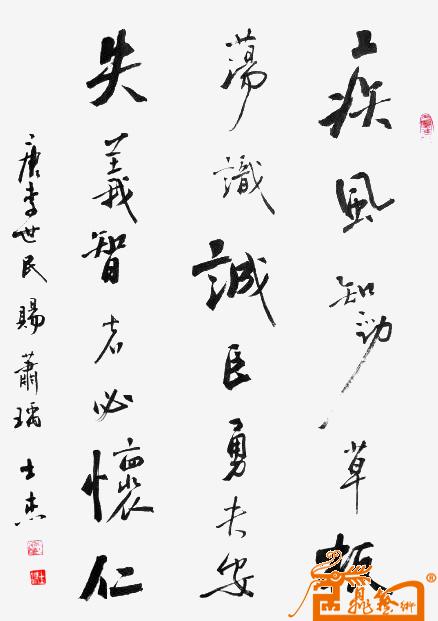 疾風知勁草板
蕩識誠臣勇夫安
失義智者必懷仁
唐李世民賜蕭瑀 士杰